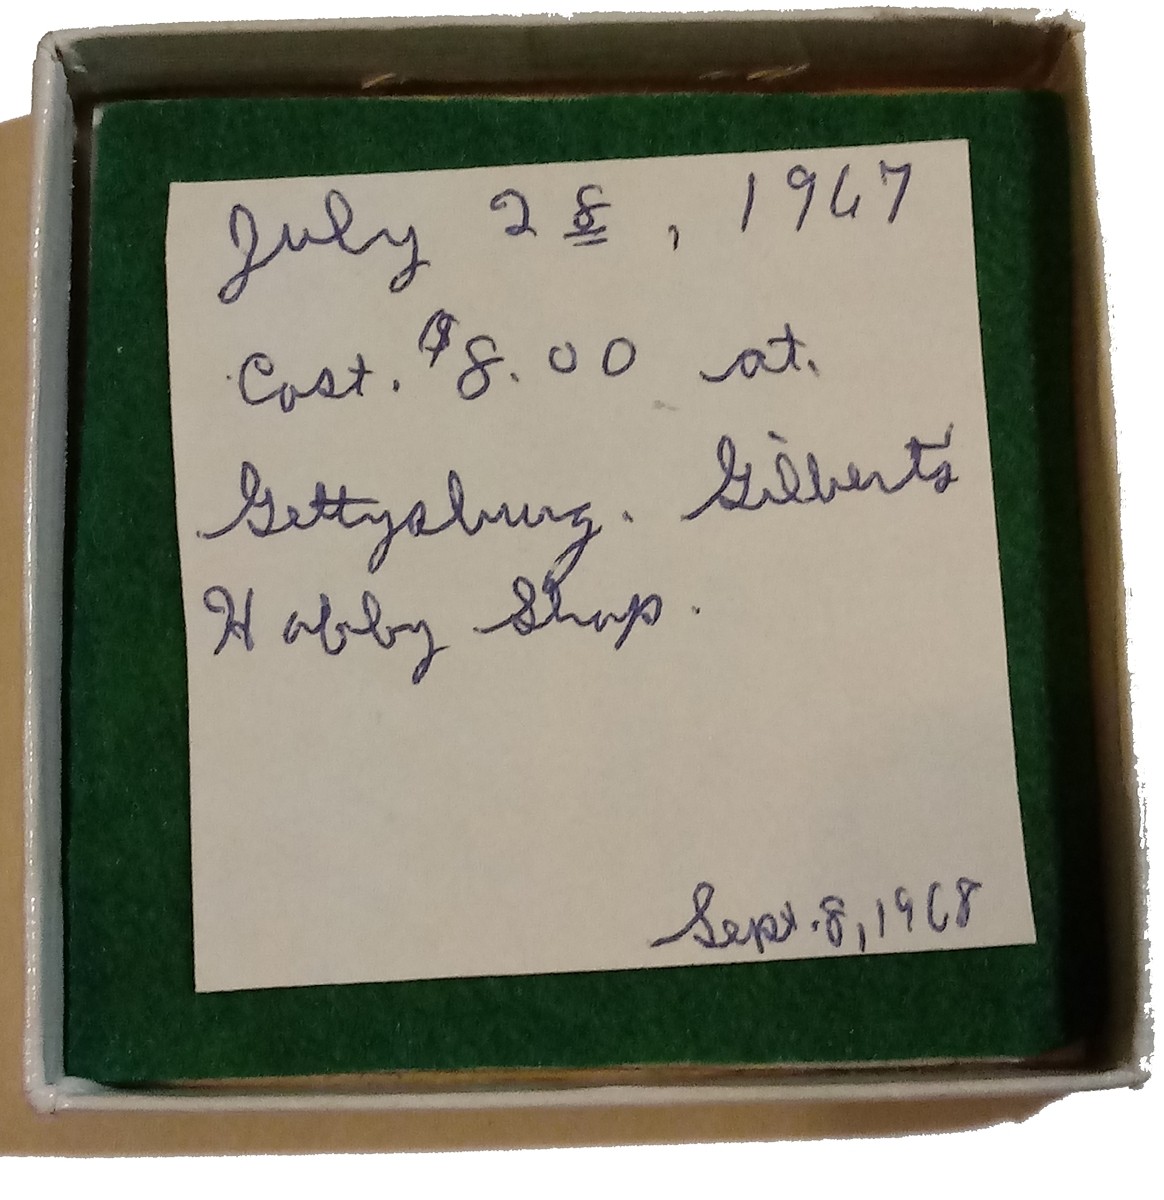 July 28, 1967
Cost. $8.00 at.
Gettysburg. Gilbert's
Hobby Shop.
Sept. 8, 1968